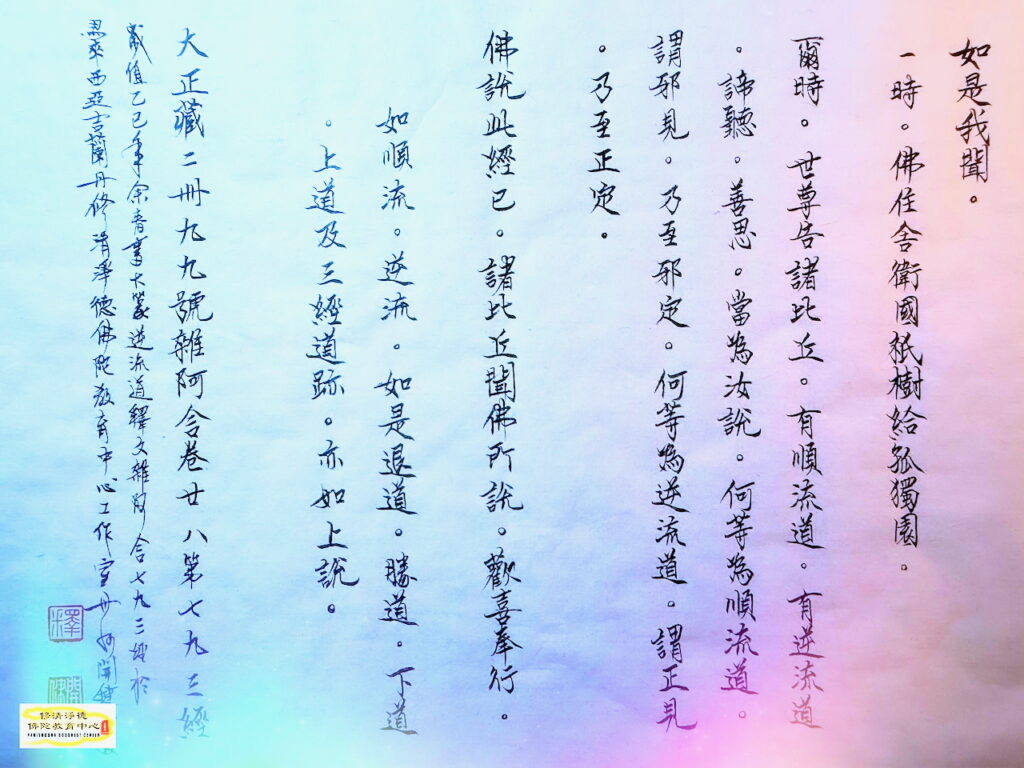 如是我聞。
一時。佛住舍衛國祇樹給孤獨園。
爾時。世尊告諸比丘。有順流道。有逆流道
。諦聽。善思。當為汝說。何等為順流道。
謂邪見。乃至邪定。何等為逆流道。謂正見
。乃至正定。
佛說此經已。諸比丘聞佛所說。歡喜奉行。
如順流。逆流。如是退道。勝道。下道
。上道及三經道跡。亦如上說。
大正藏二冊九九號雜阿含卷廿八第七九三經
歲值乙巳年余音書大篆逆流道釋文雜阿含七九三經於
馬來西亞吉蘭丹修清淨德佛陀教育中心工作室丹州開
修清淨德
佛陀教育中心